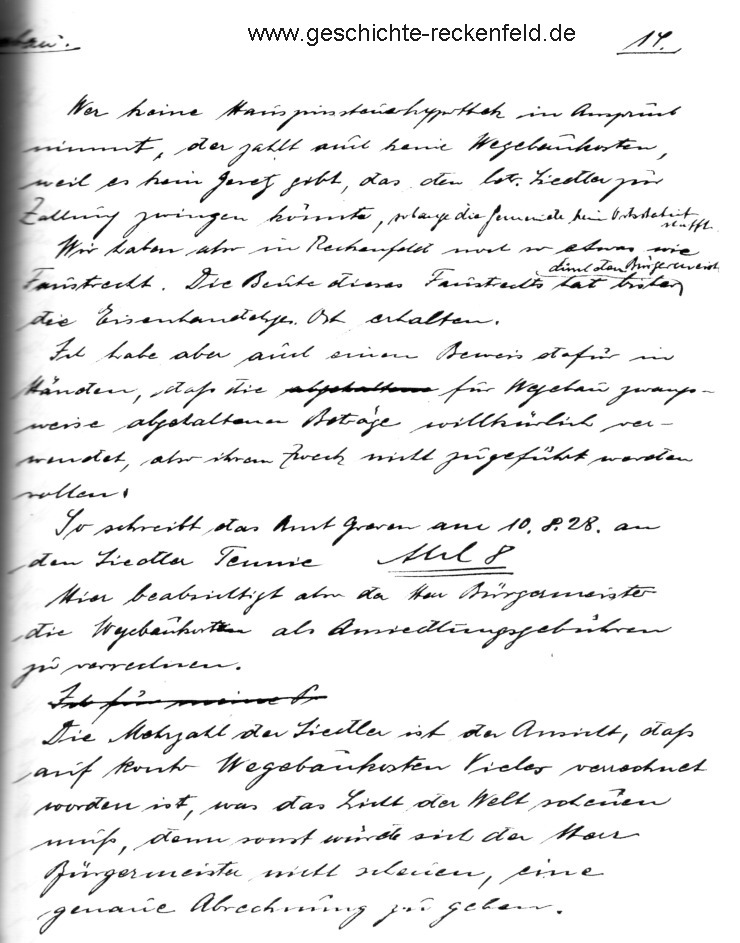 www.geschichte-reckenfeld.de
bau. 14.
Wer keine Hauszinssteuerhypothek in Anspruch
nimmt, der zahlt auch keine Wegebaukosten,
weil es kein Gesetz gibt, das den Siedler zur
Zahlung zwingen könnte, solange die Gemeinde kein Ortsstatut
schafft.
Wir haben also in Reckenfeld noch so etwas wie
durch den Bürgermeister
Faustrecht. Die Beute dieses Faustrechts hat bisher
die Eisenhandelsges. Ost erhalten.
Ich habe aber auch einen Beweis dafür in
Händen, daß die abgehaltene für Wegebau zwangs-
weise abgehaltenen Beträge willkürlich ver-
wendet, also ihrem Zweck nicht zugeführt werden
sollen.
So schreibt das Amt Greven am 10.8.28. an
den Siedler Tennie 8
Hier beabsichtigt also der Herr Bürgermeister
die Wegebaukosten als Ansiedlungsgebühren
zu verrechnen.
Ich für meine
Die Mehrzahl der Siedler ist der Ansicht, daß
auf Konto Wegebaukosten Vieles verrechnet
worden ist, was das Licht der Welt scheuen
muß, denn sonst würde sich der Herr
Bürgermeister nicht scheuen, eine
genaue Abrechnung zu geben.